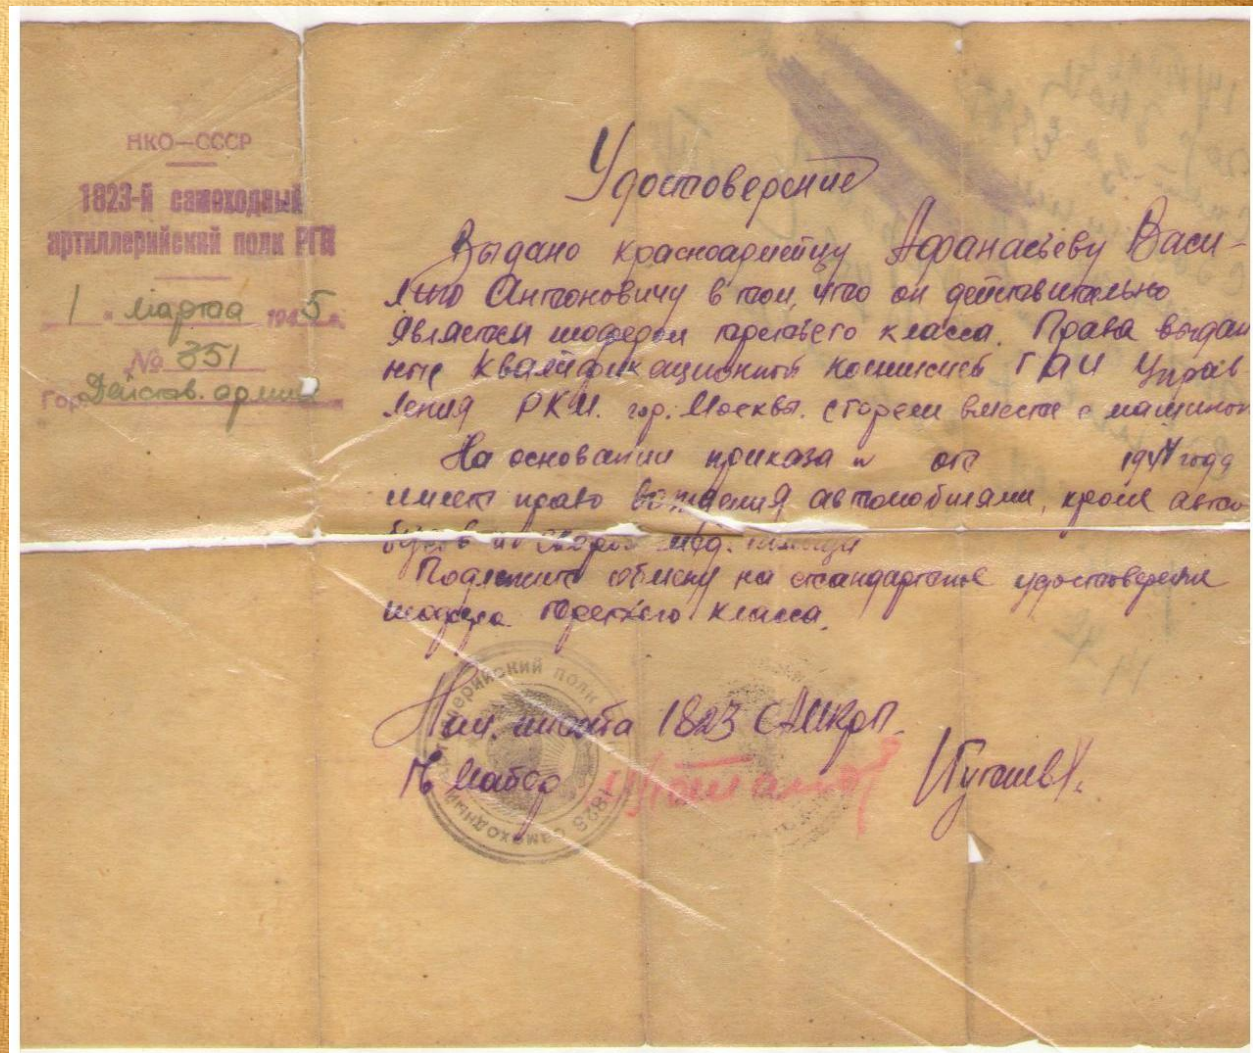 НКО—СССР
1823-й самоходный
артиллерийский полк РГК
1 " марта 1945 г.
№ 351
Гор. Действ. армия
Удостоверение
Выдано красноармейцу Афанасьеву Васи-
лию Антоновичу в том, что он действительно
является шофером третьего класса. Права выдан
ные Квалификационной комиссией ГАИ Управ
ления РКМ. гор. Москвы. сгорели вместе с машиной
На основании приказа № от 1944 года
имеет право вождения автомобилями, кроме авто
бусов и скорой мед. помощи
Подлежит обмену на стандартное удостоверение
шофера третьего класса.
Нач. штаба 1823 САМКРП.
Гв Майор
артиллерийский полк
1823 самоходный